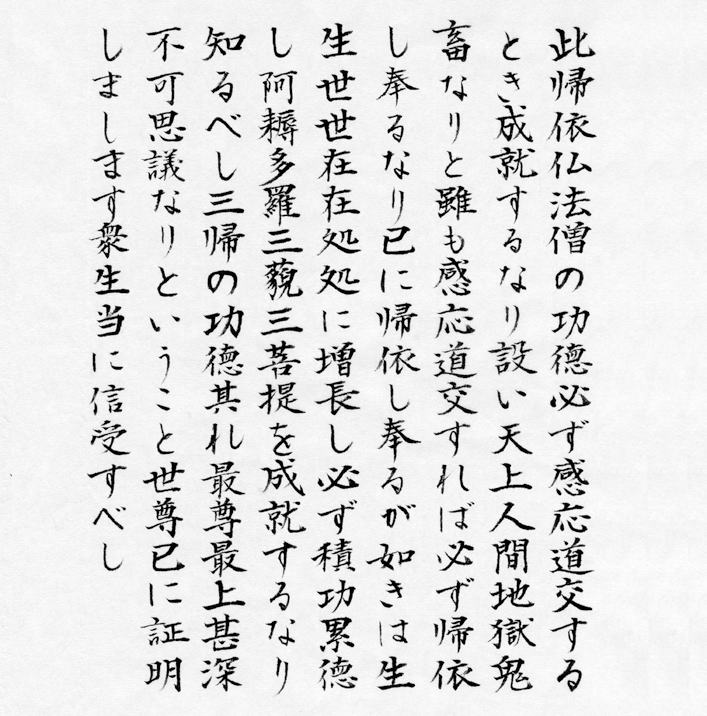 此帰依仏法僧の功徳必ず感応道交する
とき成就するなり設い天上人間地獄鬼
畜なりと雖も感応道交すれば必ず帰依
し奉るなり已に帰依し奉るが如きは生
生世世在在処処に増長し必ず積功累徳
し阿耨多羅三藐三菩提を成就するなり
知るべし三帰の功徳其れ最尊最上甚深
不可思議なりということ世尊已に証明
しまします衆生当に信受すべし